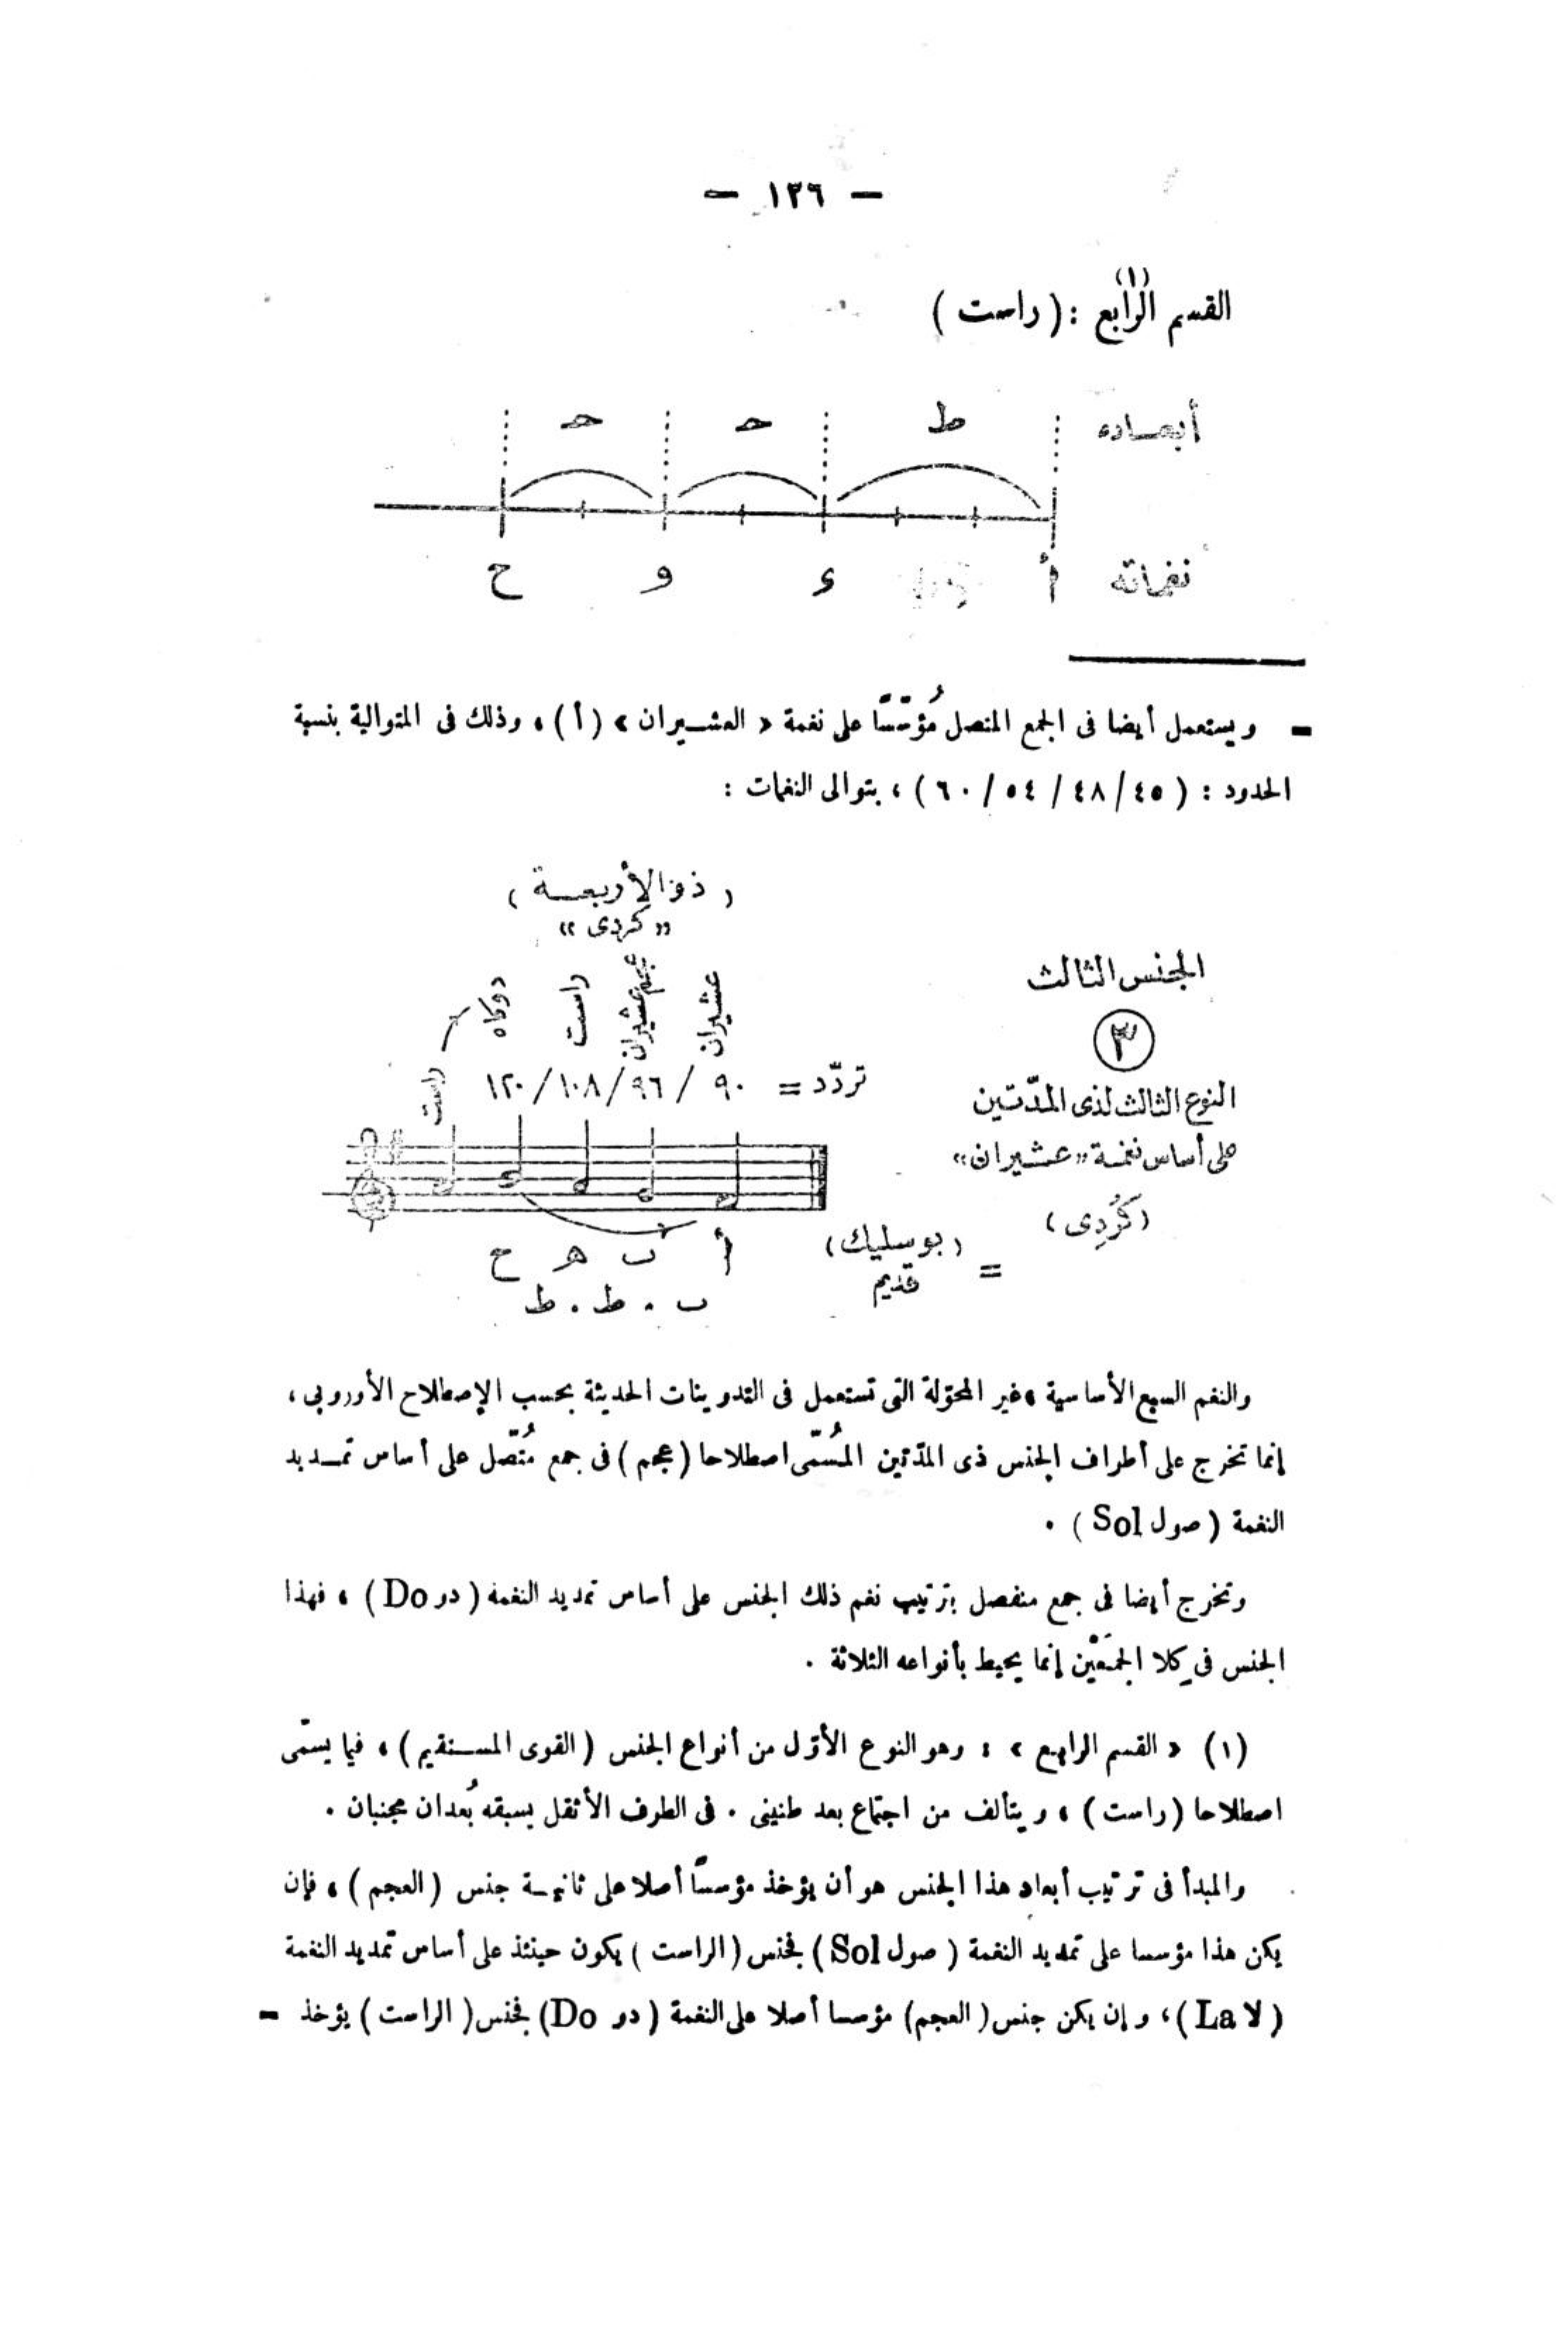 — ١٣٦ —
القسم الرابع(١) : ( راست )
أبعاده ط ح ح
نغماته أ ء و ح
– ويستعمل أيضا فى الجمع المتصل مُؤسّسًا على نغمة « العشيران » (أ) ، وذلك فى المتوالية بنسبة
الحدود : ( ٤٥ / ٤٨ / ٥٤ / ٦٠ ) ، بتوالى النغمات :
( ذو الأربعة )
«كردى»
الجنس الثالث
عشيران عجم عشيران راست دوكاه
٣
تردّد = ٩٠ / ٩٦ / ١٠٨ / ١٢٠
راست
النوع الثالث لذى المدّتين
على أساس نغمة «عشيران»
(كُردِى)
= (بوسليك)
قديم
أ ب هـ ح
ب . ط . ط
والنغم السبع الأساسية ، غير المحوّلة التى تستعمل فى التدوينات الحديثة بحسب الإصطلاح الأوروبى ،
إنما تخرج على أطراف الجنس ذى المدّتين المُسمّى اصطلاحا ( عجم ) فى جمع مُتّصل على أساس تمـديد
النغمة ( صول Sol ) .
وتخرج أيضا فى جمع منفصل بترتيب نغم ذلك الجنس على أساس تمديد النغمة ( دو Do ) ، فهذا
الجنس فى كِلا الجمعَيْن إنما يحيط بأنواعه الثلاثة .
(١) « القسم الرابع » : وهو النوع الأوّل من أنواع الجنس ( القوى المستقيم ) ، فيما يسمّى
اصطلاحا ( راست ) ، ويتألف من اجتماع بعد طنينى . فى الطرف الأثقل يسبقه بُعدان مجنبان .
والمبدأ فى ترتيب أبعاد هذا الجنس هو أن يؤخذ مؤسسًا أصلا على ثانيـة جنس ( العجم ) ، فإن
يكن هذا مؤسسا على تمديد النغمة ( صول Sol ) فجنس ( الراست ) يكون حينئذ على أساس تمديد النغمة
( لا La ) ، وإن يكن جنس ( العجم ) مؤسسا أصلا على النغمة ( دو Do ) فجنس ( الراست ) يؤخذ –